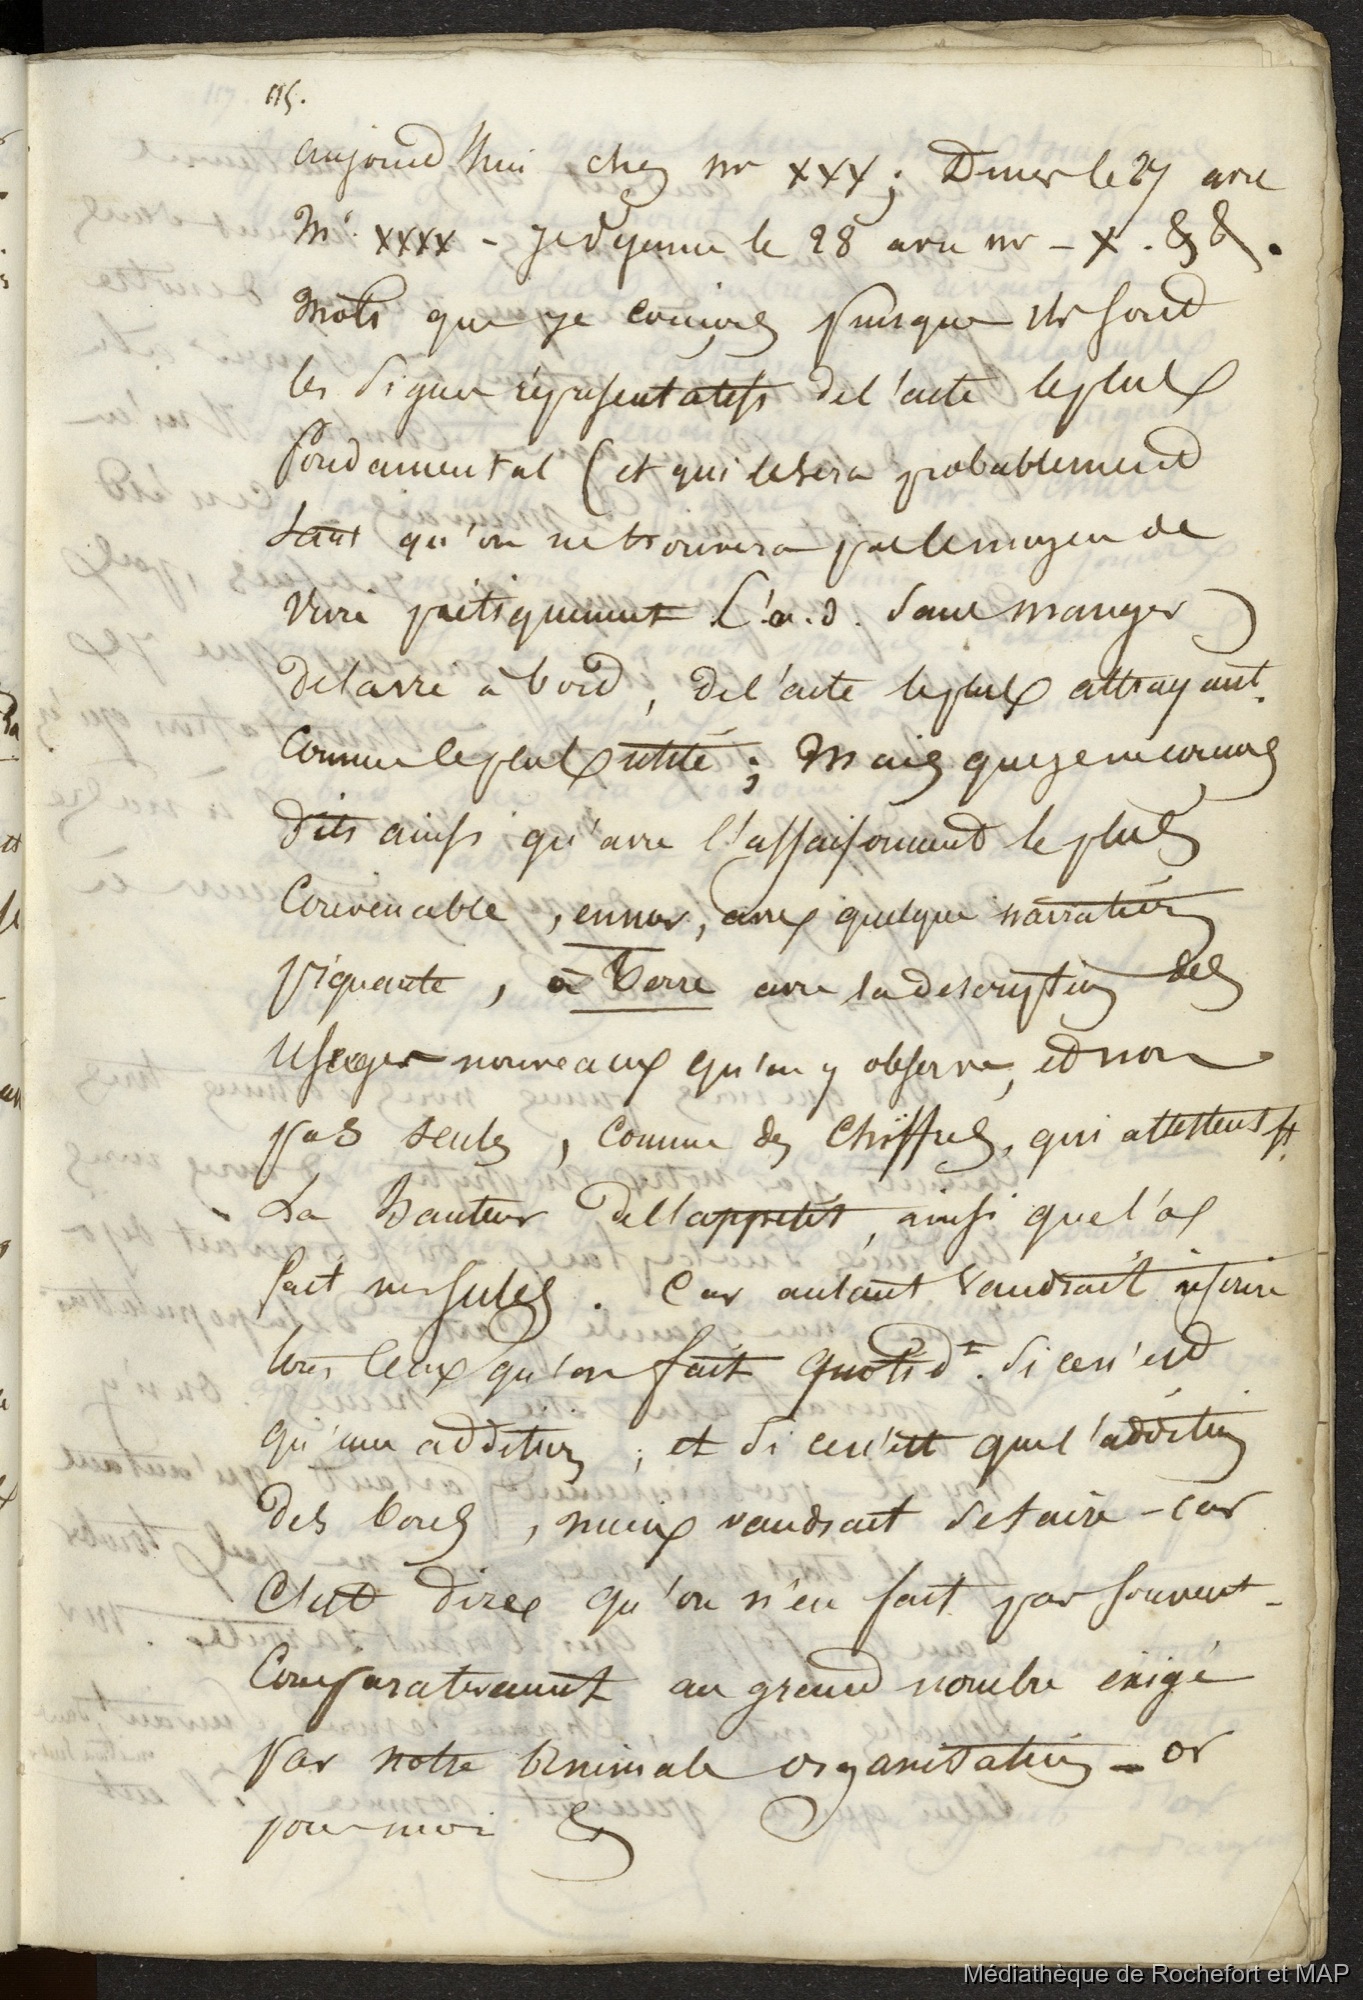 115.
aujourd'hui chez mr xxx ; Diner le 27 avec
Mr. xxxx - je déjeune le 28 avec mr - x . & & .
Mots que je conçois puisque ils sont
les signes représentatifs de l'acte le plus
fondamental (et qui le sera probablement
tant qu'on ne trouvera pas le moyen de
vivre poétiquement C.'a.d. sans manger )
de la vie à bord, de l'acte le plus attrayant
comme le plus utile ; Mais que je ne conçois
dits ainsi qu'avec l'assaisonnement le plus
convenable , en mer, avec quelque narration
piquante , à Terre avec la description des
usages nouveaux qu'on y observe, et non
pas seuls , comme des chiffres, qui attestent
La Hauteur de l'appétit, ainsi que l'a
fait . Car autant vaudrait inscrire
tous ceux qu'on fait quotidt. si ce n'est
qu'une addition ; et si ce n'est que l'addition
des bons , mieux vaudrait se taire - car
c'est dire qu'on n'en fait pas souvent -
Comparativement au grand nombre exigé
par notre animale organisation - or
pour moi
Médiathèque de Rochefort et MAP